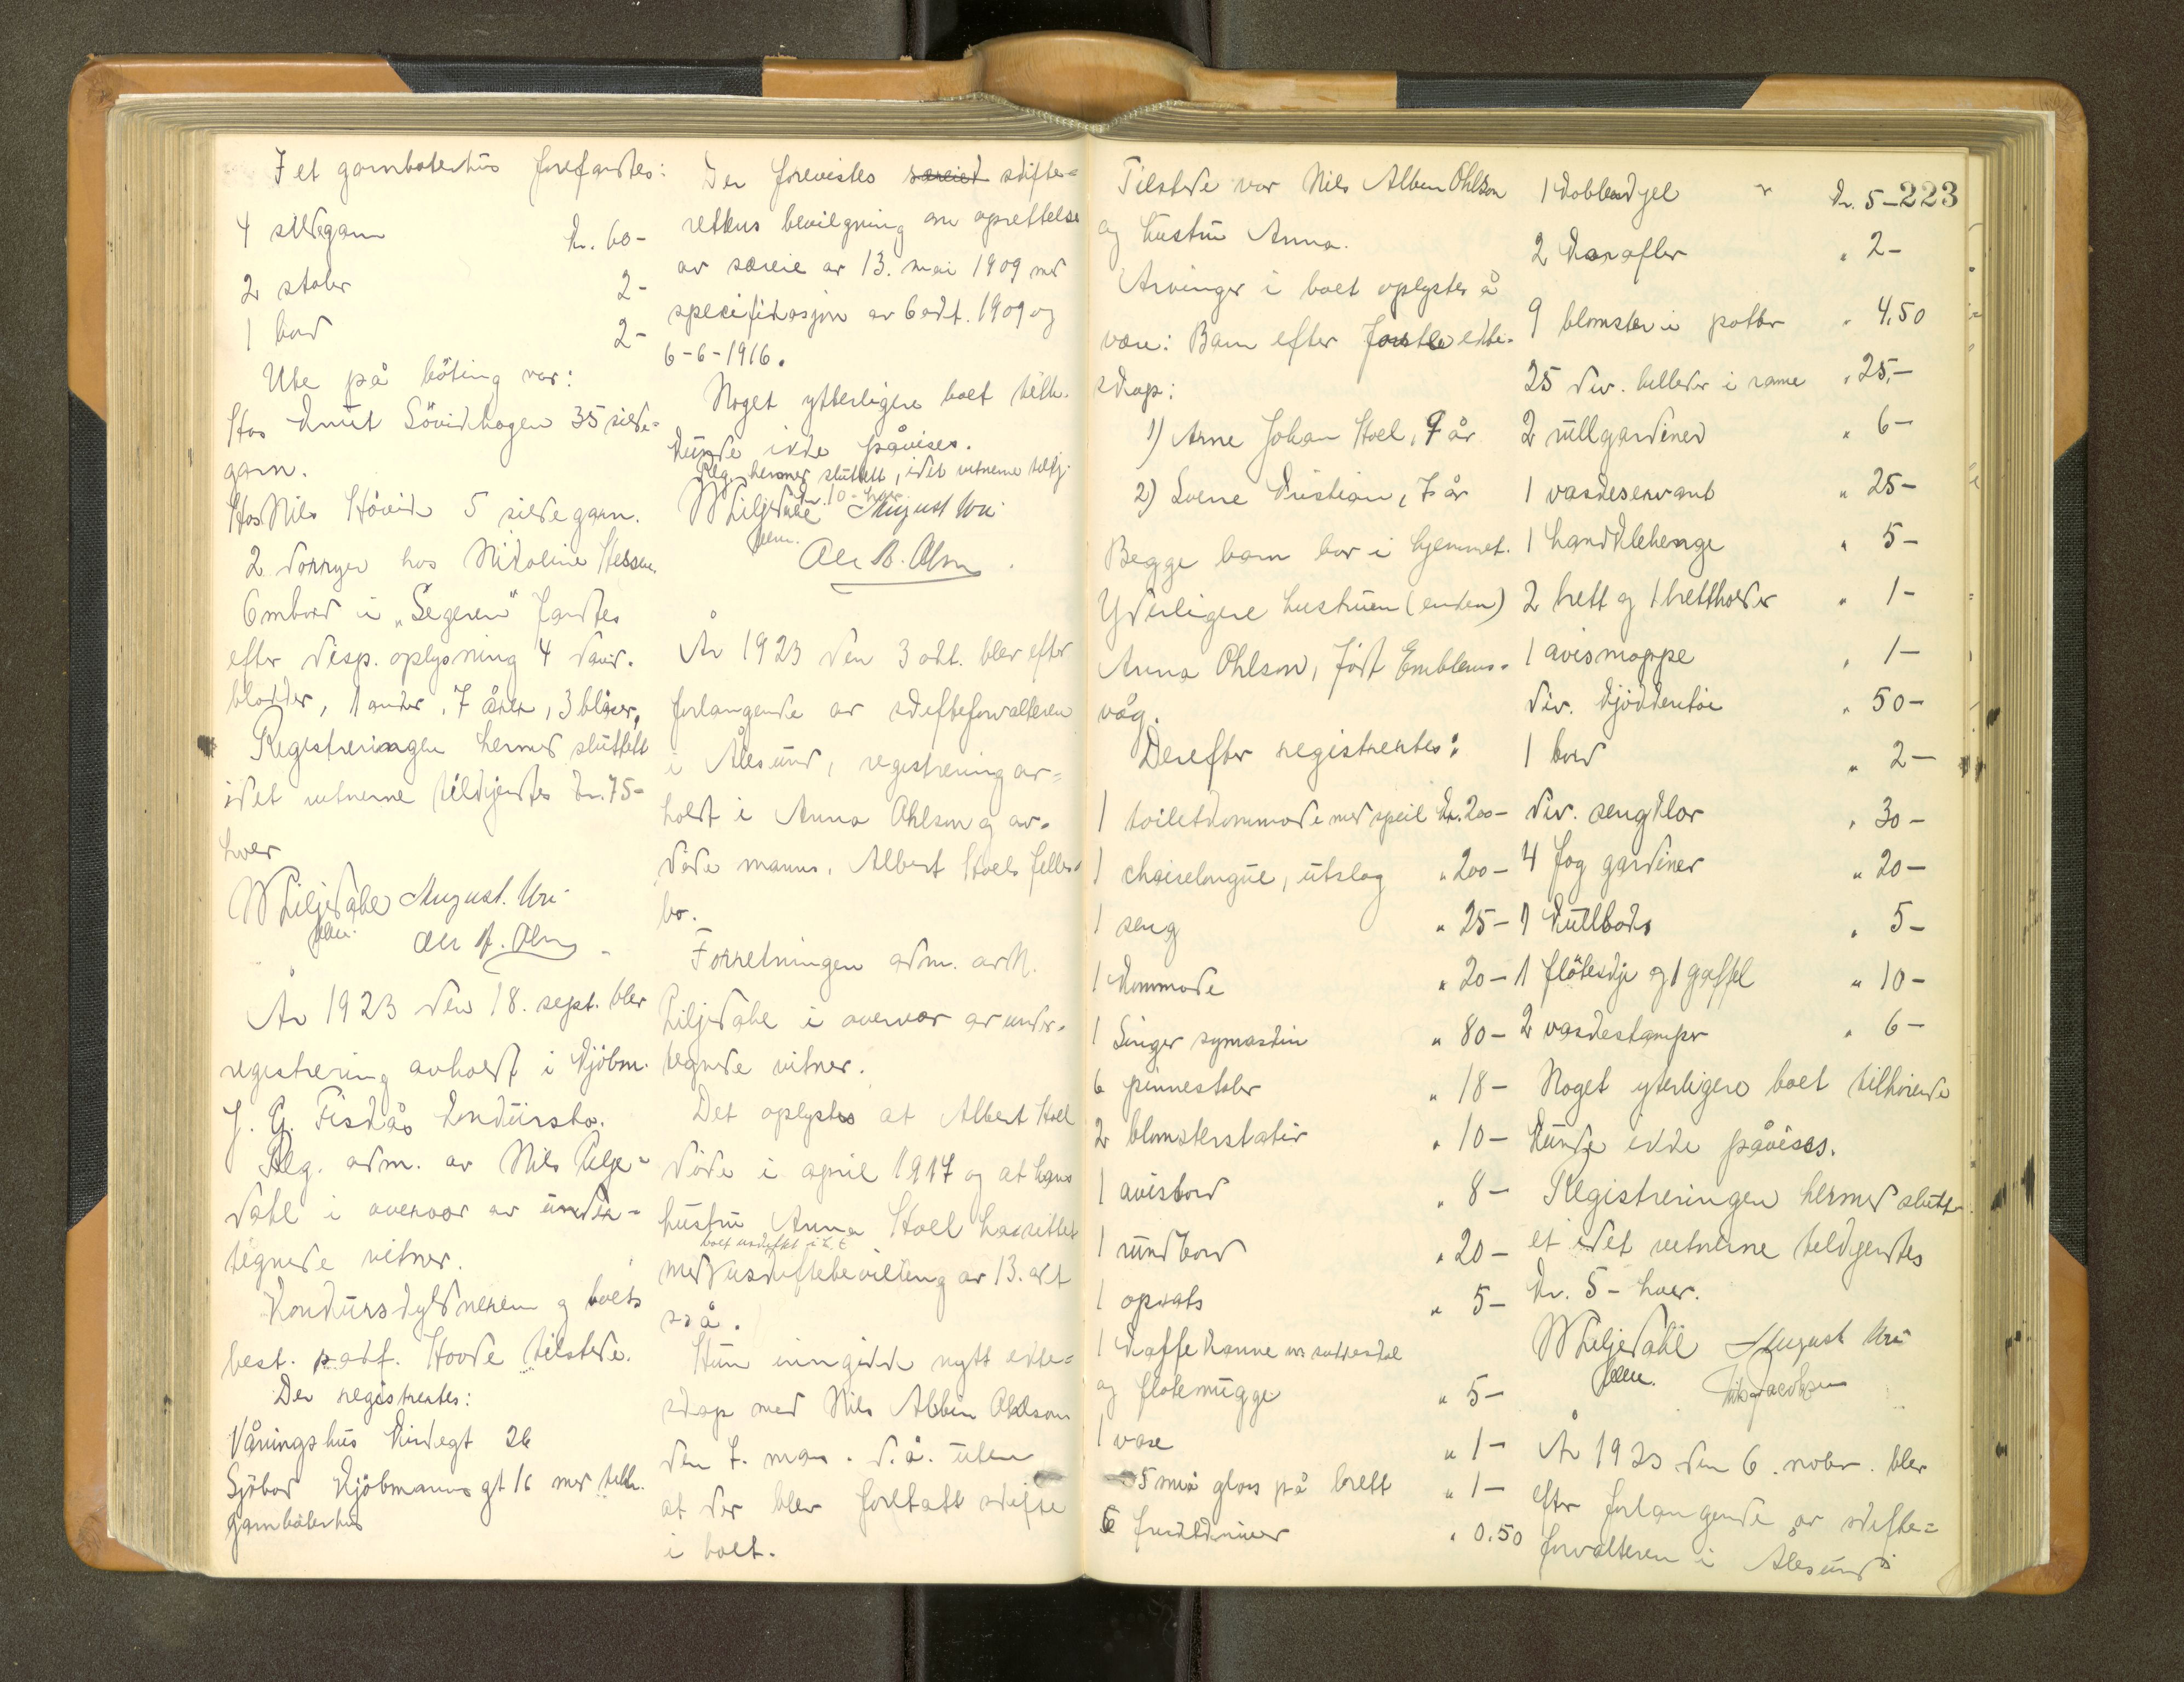 I et garnbøterhus forefandtes:
4 sildegarn kr. 60-
2 stoler 2-
1 bord 2-
Ute på böting var:
Hos Knut Sövikhagen 35 silde-
garn.
Hos Nils Hövik 5 sildegarn.
2 dorryer hos Nikoline Hessen.
Ombord i „Segeren" fandtes
efter disp. oplysning 4 david.
blokker, 1 anker, 7 årer, 3 blåser,
Registreringen hermed sluttet
idet vitnerne tilkjendtes kr. 75-
hver
N Liljedahl August. Uri
Ole A. Alm
År 1923 den 18. sept. blev
registrering avholdt i kjöbm.
J. G. Fiskås konkursbo.
Reg. adm. av Nils Lilje-
dahl i overvær av under-
tegnede vitner.
Konkursskyldneren og boets
best. sakf. Hovde tilstede.
Der registrertes:
Våningshus Kirkegt 26
Sjöbod Kjöbmannsgt 16 med tilh.
garnbøterhus
Der forevistes særeid skifte-
rettens bevilgning om oprettelse
av særeie av 13. mai 1909 med
specifikasjon av 6 okt. 1909 og
6-6-1916.
Noget ytterligere boet tilh.
kunde ikke påvises.
Reg. hermed sluttet, idet vitnerne tilkj.
kr. 10- hver.
N Liljedahl August Uri
Ole A. Alm
År 1923 den 3 okt. blev efter
forlangende av skifteforvalteren
i Ålesund, registrering av-
holdt i Anna Ohlson og av-
döde manns, Albert Hoels felles-
bo.
Forretningen adm. av N.
Liljedahl i overvær av under-
tegnede vitner.
Det oplystes at Albert Hoel
döde i april 1917 og at hans
hustru Anna Hoel har sittet
boet uskiftet i h. t.
med uskiftebevilling av 13. okt
s. å.
Hun inngikk nytt ekte-
skap med Nils Albin Ohlson
den 7. mars. d. å. uten
at der blev foretatt skifte
i boet.
223
Tilstede var Nils Albin Ohlson
og hustru Anna.
Arvinger i boet oplystes å
være: Barn efter første ekte-
skap:
1) Arne Johan Hoel, 9 år
2) Sverre Kristian, 7 år
Begge barn bor i hjemmet.
Yderligere hustruen (enken)
Anna Ohlson, født Emblems-
våg.
Derefter registrertes:
1 toiletkommode med speil kr. 200-
1 chaiselongue, utslag " 200-
1 seng " 25-
1 kommode " 20-
1 Singer symaskin " 80-
6 pinnestoler " 18-
2 blomsterstativ " 10-
1 avisbord " 8-
1 rundbord " 20-
1 opsats " 5-
1 kaffekanne m sukkerskål
og flötemugge " 5-
1 vase " 1-
5 små glass på brett " 1-
6 fruktkniver " 0.50
1 kobberkjel " kr. 5-
2 karafler " 2-
9 blomster i potter " 4,50
25 div. billeder i rame " 25,-
2 rullgardiner " 6-
1 vaskeservant " 25-
1 handklehenge " 5-
2 brett og 1 brettholder " 1-
1 avismappe " 1-
div. kjökkentöi " 50-
1 bord " 2-
div. sengklær " 30-
4 fag gardiner " 20-
1 kullboks " 5-
1 flöteskje og 1 gaffel " 10-
2 vaskestamper " 6-
Noget yterligere boet tilhörende
kunde ikke påvises.
Registreringen hermed slutt-
et idet vitnerne tilkjendtes
kr. 5- hver.
N Liljedahl August Uri
År 1923 den 6. nobr. blev
efter forlangende av skifte-
forvalteren i Ålesund